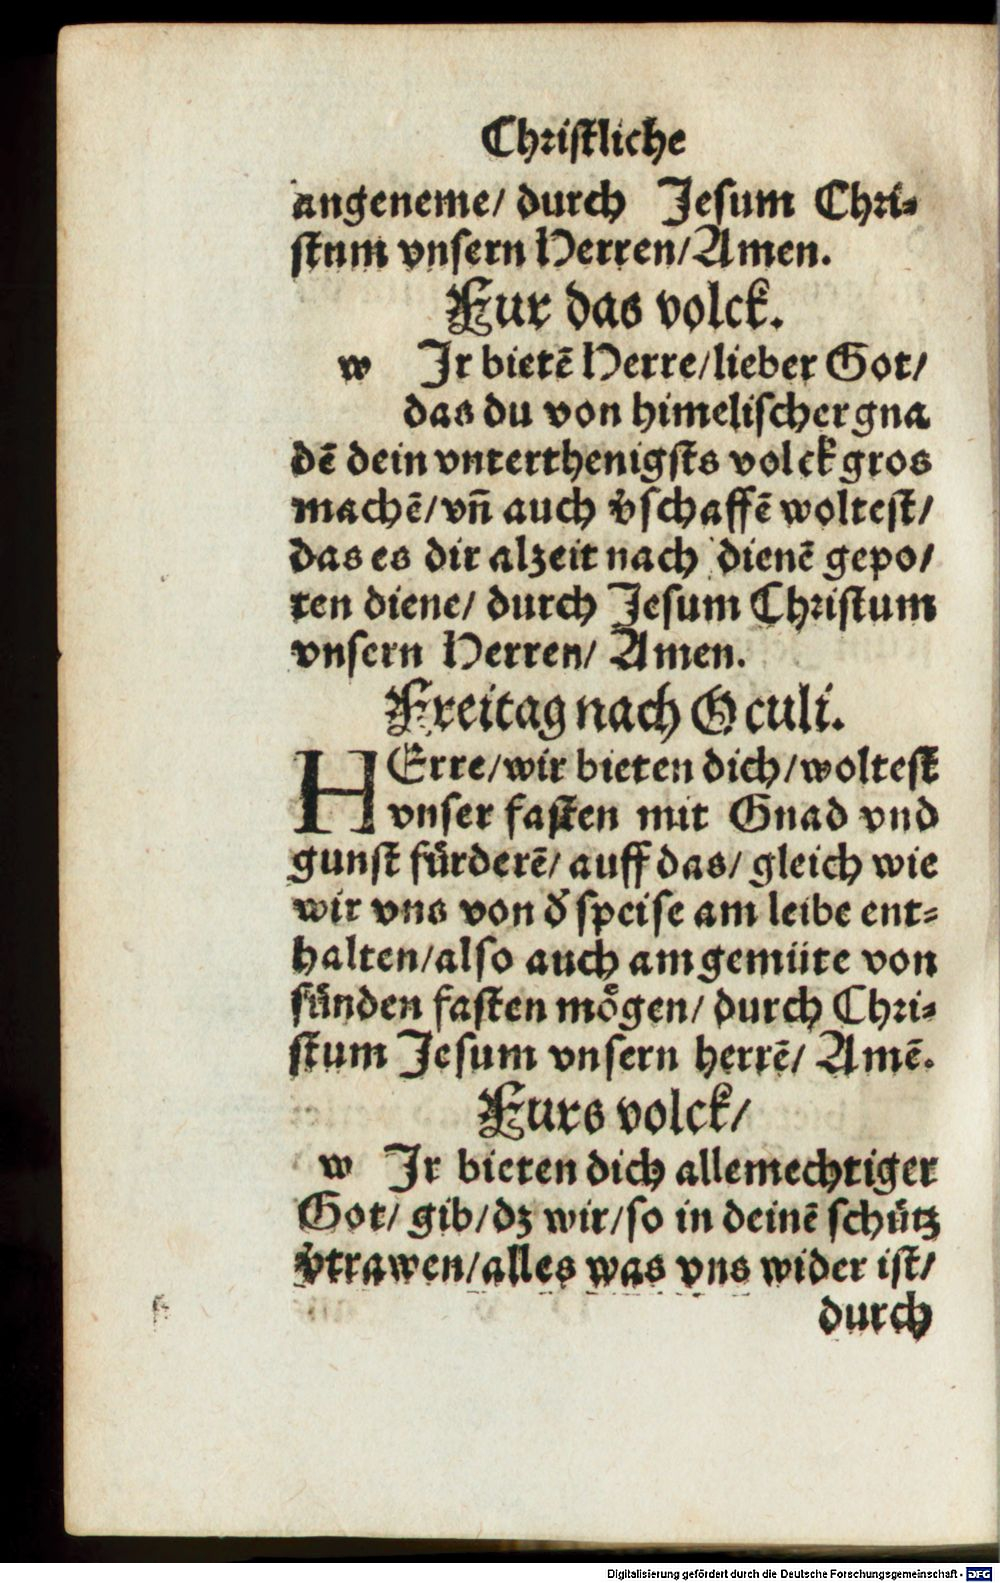 Christliche
angeneme/ durch Jesum Chri-
stum vnsern Herren/Amen.
Fur das volck.
w Jr bietē Herre/lieber Got/
das du von himelischer gna
dē dein vnterthenigsts volck gros
machē/vn̄ auch v̾schaffē woltest/
das es dir alzeit nach dienē gepo/
ten diene/ durch Jesum Christum
vnsern Herren/ Amen.
Freitag nach Oculi.
HErre/wir bieten dich/woltest
vnser fasten mit Gnad vnd
gunst fürderē/ auff das/ gleich wie
wir vns von d̾ speise am leibe ent-
halten/also auch am gemüte von
sünden fasten mögen/ durch Chri-
stum Jesum vnsern herrē/ Amē.
Furs volck/
w Jr bieten dich allemechtiger
Got/ gib/dz wir/so in deinē schütz
v̾trawen/alles was vns wider ist/
durch
Digitalisierung gefördert durch die Deutsche Forschungsgemeinschaft - DFG